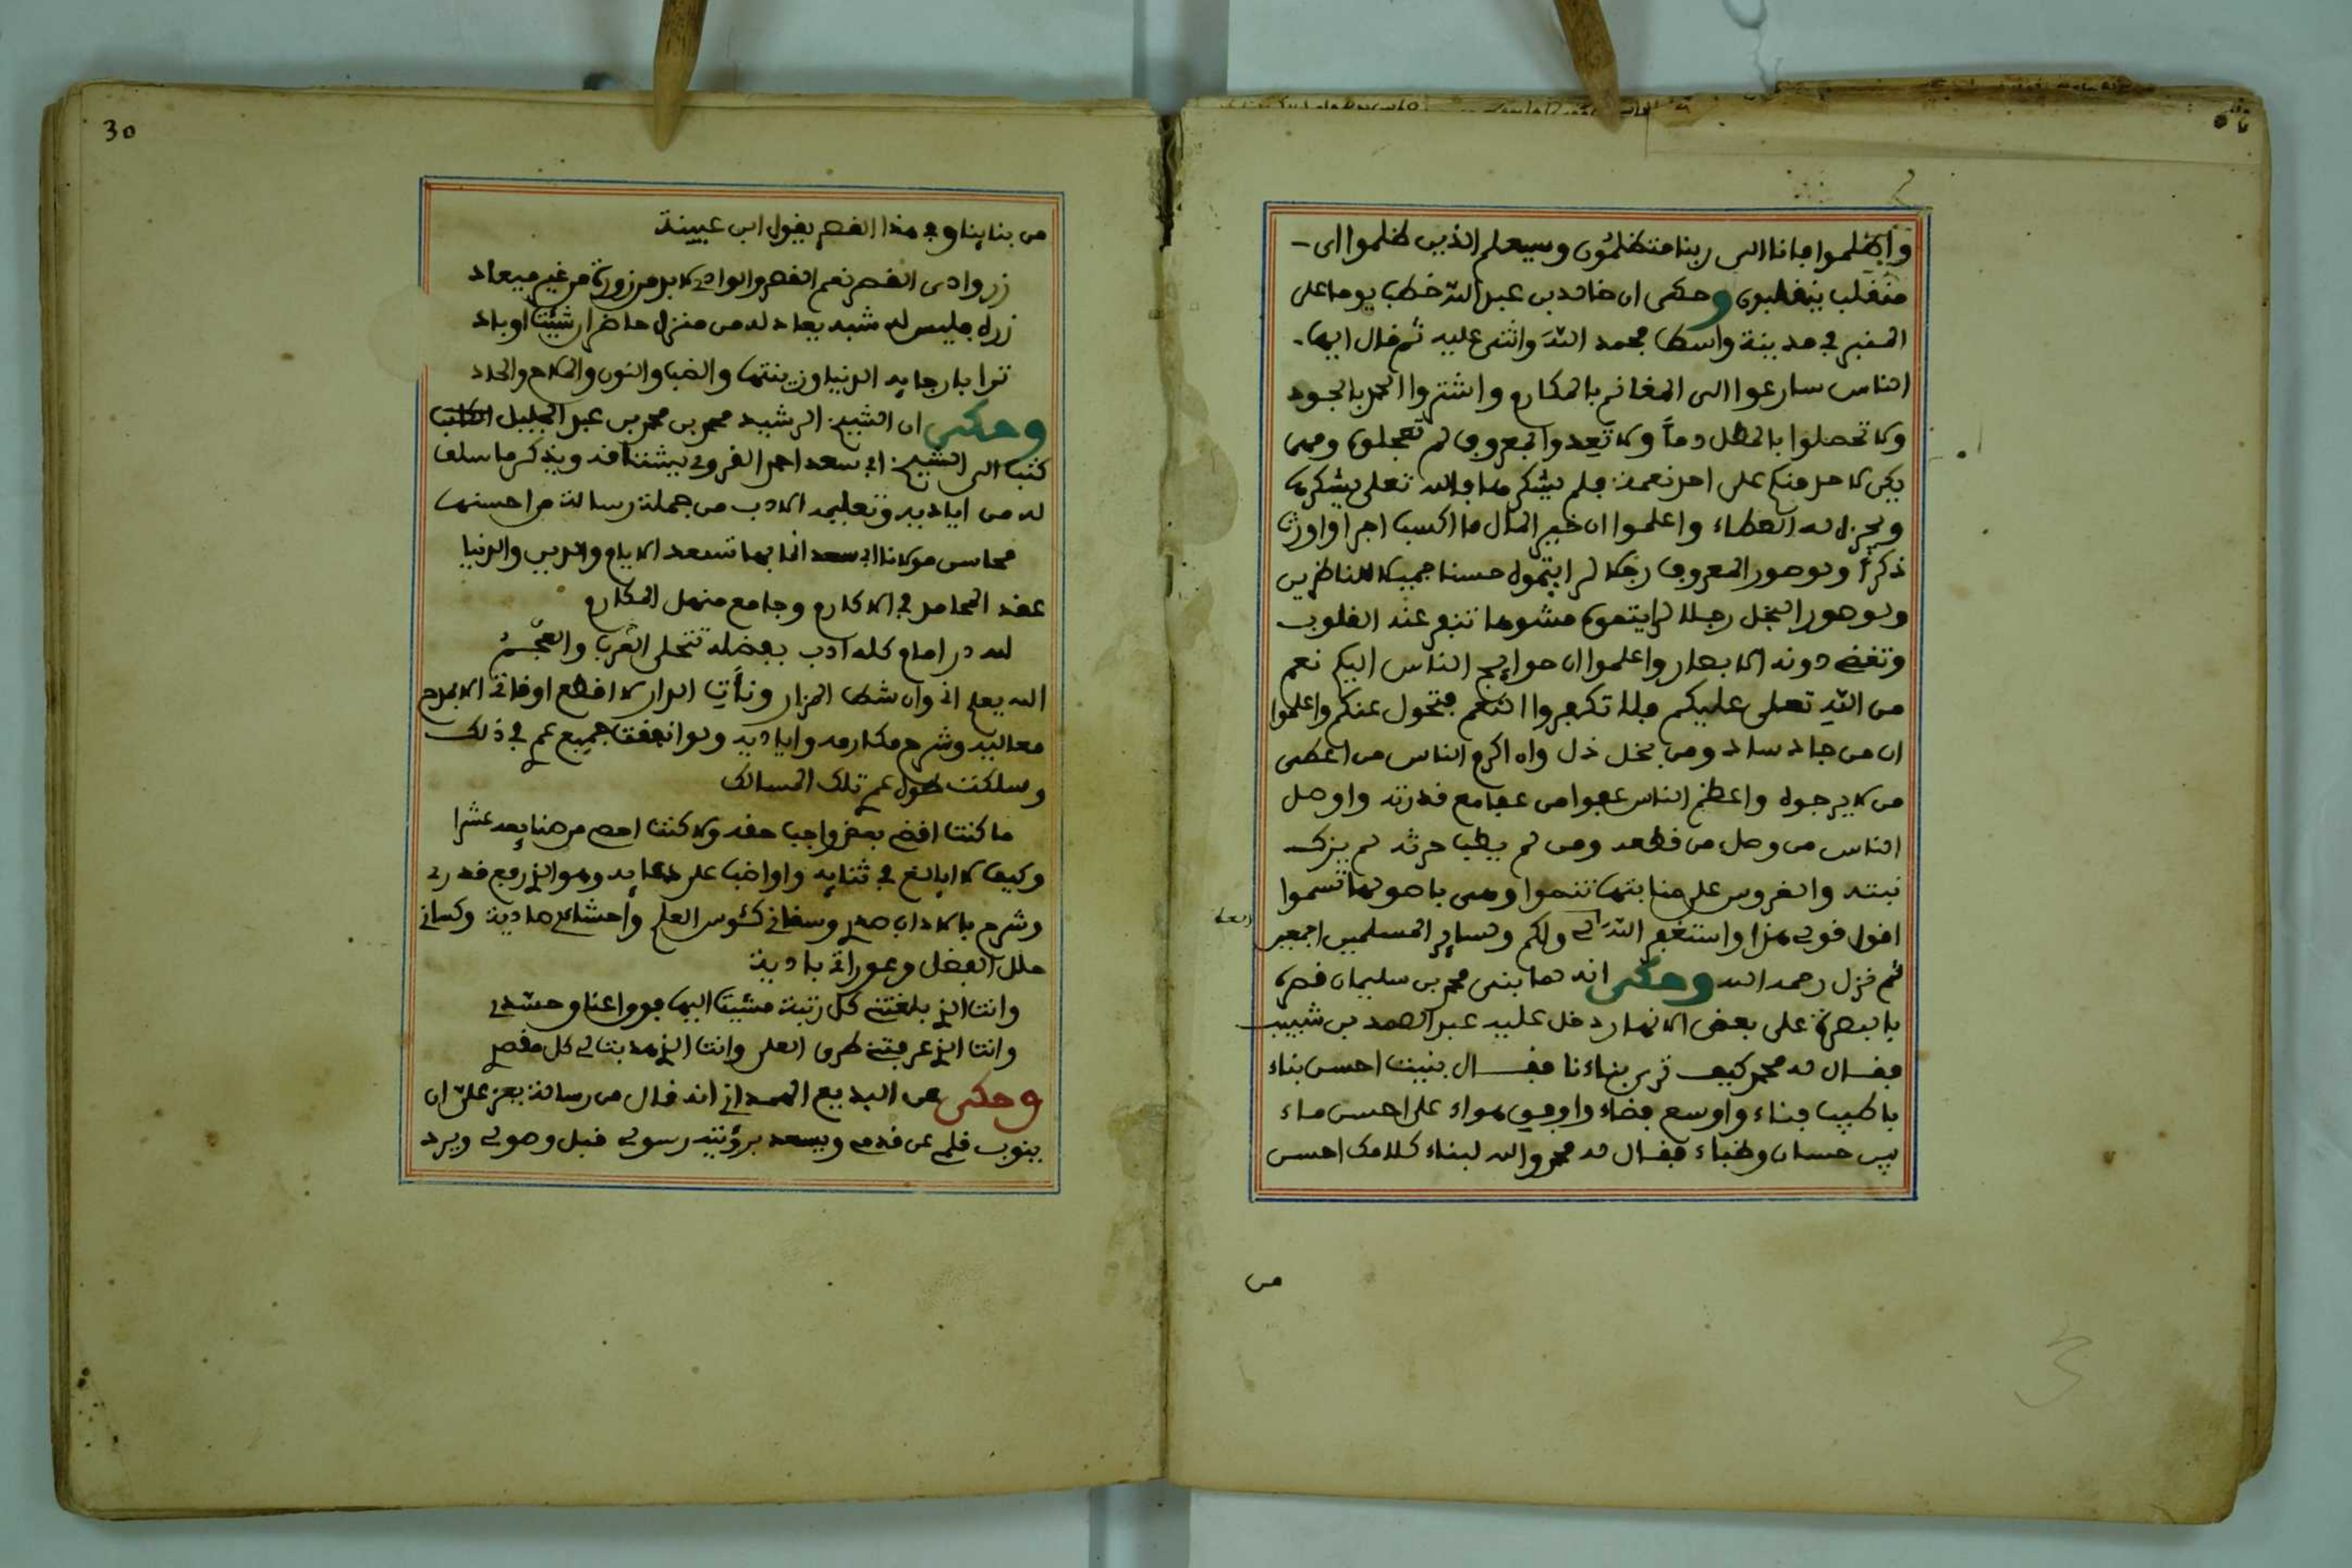 واظلموا فانا الى ربنا متظلمون وسيعلم الذين ظلموا اى
منقلب ينقلبون وحكى ان خالد بن عبد الله خطب يوما على
المنبر في مدينة واسط فحمد الله واثنى عليه ثم قال ايها
الناس سارعوا الى المغانم بالمكارم واشتروا الحمد بالجود
ولا تحصلوا بالمطل ذما ولا تعدوا بالمعروف لم تعجلوه ومهما
يكن لاحد منكم على احد نعمة فلم يشكرها فالله تعلى يشكرها
ويجزل له العطاء واعلموا ان خير المال ما اكسب اجرا واورث
ذكرا ولو صور المعروف رجلا لرايتموه حسنا جميلا للناظرين
ولو صور البخل رجلا لرايتموه مشوها تنفر عنه القلوب
وتغض دونه الابصار واعلموا ان حوايج الناس اليكم نعم
من الله تعلى عليكم فلا تكفروا النعم فتحول عنكم واعلموا
ان من جاد ساد ومن بخل ذل وان اكرم الناس من اعطى
من لا يرجوه واعظم الناس عفوا من عفا مع قدرته واوصل
الناس من وصل من قطعه ومن لم يطب حرثه لم يزك
نبته والغروس على منابتها تنموا وهى باصولها تسموا
اقول قولي هذا واستغفر الله لي ولكم ولساير المسلمين اجمعين
ثم نزل رحمه الله وحكى انه لما بنى محمد بن سليمان قصره
بالبصرة على بعض الانهار دخل عليه عبد الصمد بن شبيب
فقال له محمد كيف ترى بناءنا فقال بنيت احسن بناء
باطيب فناء واوسع فضاء وارق هواء على احسن ماء
بين حسان وظباء فقال له محمد والله لبناء كلامك احسن
من
30
من بنائنا وفي هذا القصر يقول ابن عيينة
زر وادى القصر نعم القصر والوادي لا بد من زورة من غير ميعاد
زره فليس له شبه يعادله من منزل حاضر ان شئت او باد
ترا بارجايه الدنيا وزينتها والضب والنون والملاح والحاد
وحكى ان الشيخ الرشيد محمد بن محمد بن عبد الجليل الكاتب
كتب الى الشيخ ابي سعد احمد يذكر ما سلف
له من اياديه وتعليمه الادب من جملة رسالة من احسنها
محاسن مولانا ابي سعد انما بها تسعد الايام والدين والدنيا
عقد المحامد في الاكارم وجامع منهل المكارم
لله در امام كله ادب بفضله تتحلى العرب والعجم
الله يعلم اني وان شط المزار ونأت الدار لا اقطع اوقاتي الا بمدح
معاليه وشرح مكارمه واياديه ولو انفقت جميع عمري في ذلك
وسلكت طول عمري تلك المسالك
ما كنت اقضي بعض واجب حقه ولا كنت احصي من صنايعه عشرا
وكيف لا ابالغ في ثنايه واواظب على دعايه وهو الذي رفع قدري
وشرح بالاداب صدري وسقاني كئوس العلم واحشاي صادية وكساني
حلل الفضل وعوراتي بادية
وانت الذي بلغتني كل رتبة مشيت اليها فوق اعناق حسدي
وانت الذي عرفتني طرق العلى وانت الذي هديتني كل مقصد
وحكى عن البديع الهمداني انه قال من رسالة يعز على ان
ينوب قلمي عن قدمي ويسعد برؤيته رسولي قبل وصولي ويرد